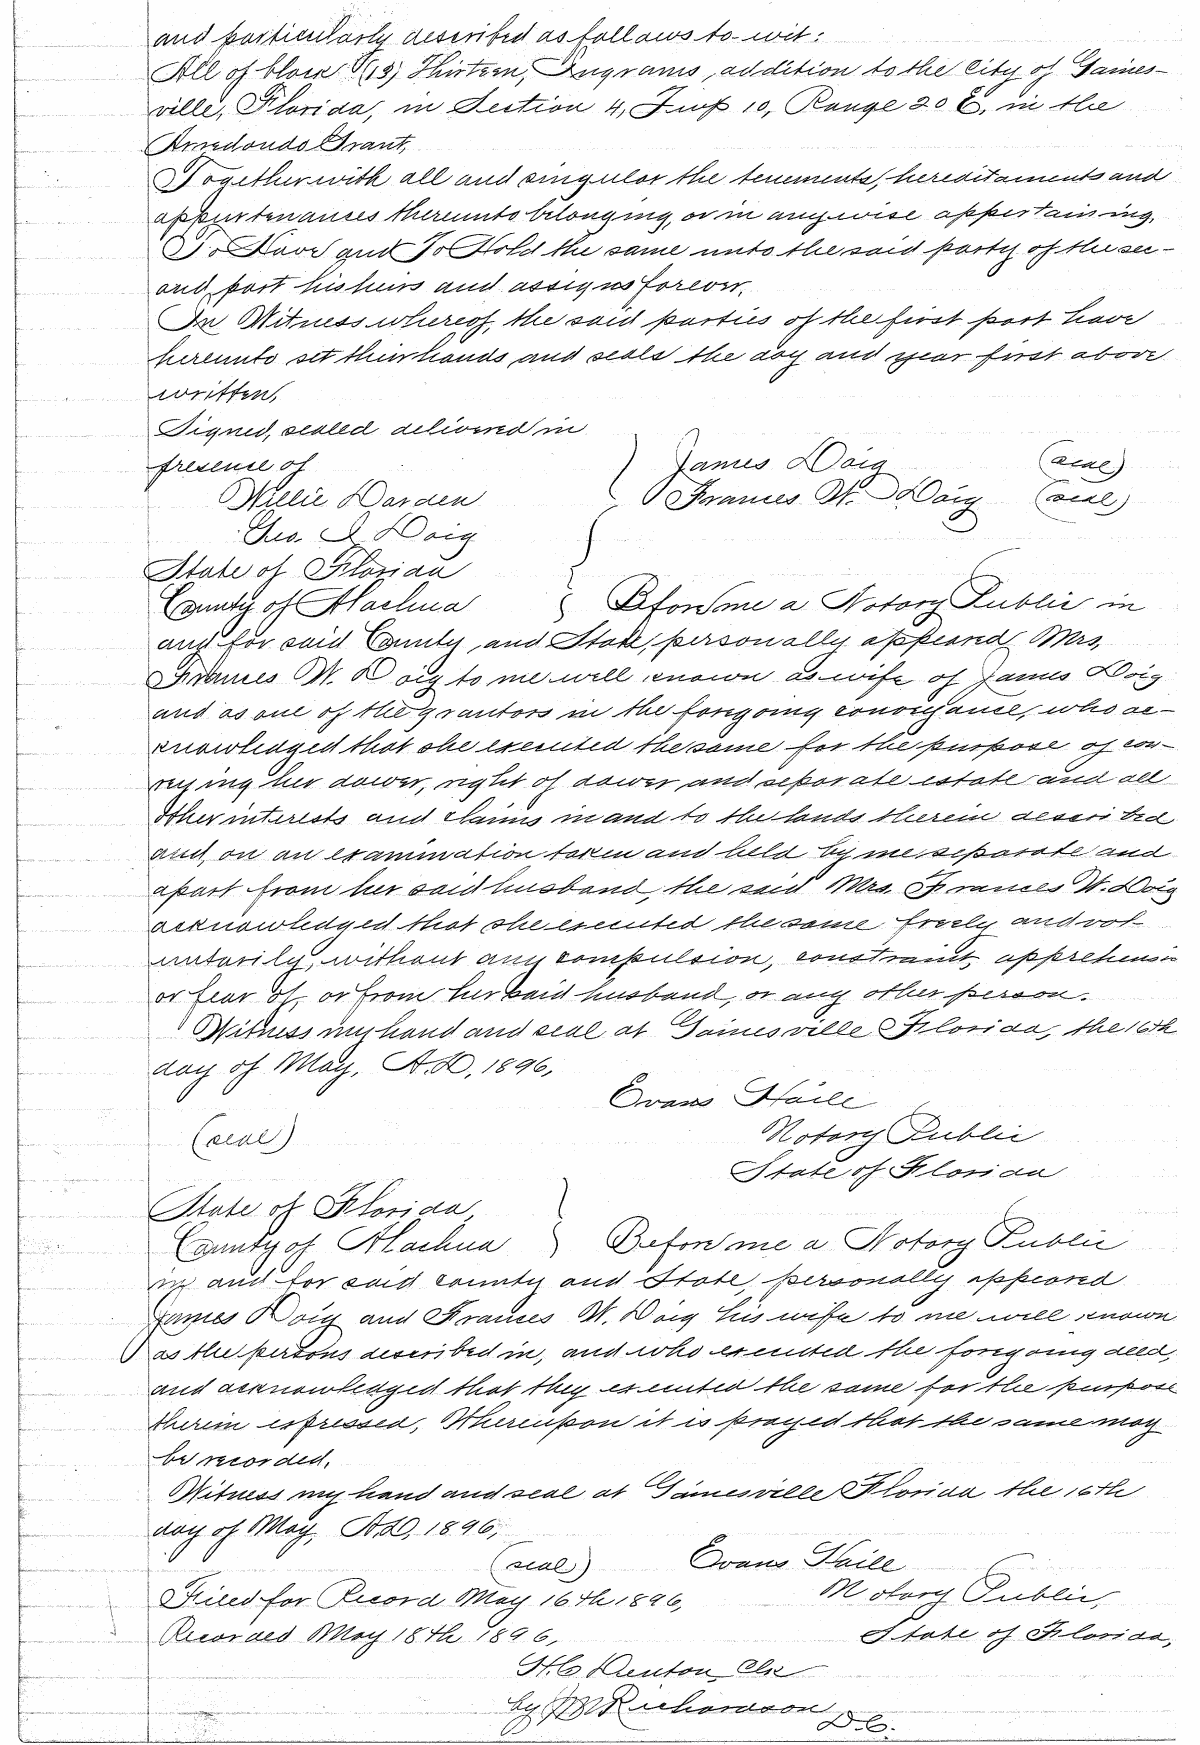 and particularly described as follows to-wit:
All of block (13) Thirteen, Ingrams, addition to the City of Gaines-
ville, Florida, in Section 4, Twp 10, Range 20 E, in the
Arredondo Grant,
Together with all and singular the tenements, hereditaments and
appurtenances thereunto belonging, or in anywise appertaining,
To Have and To Hold the same unto the said party of the sec-
ond part his heirs and assigns forever,
In Witness whereof, the said parties of the first part have
hereunto set their hands and seals the day and year first above
written,
Signed, sealed delivered in
presence of
James Doig (seal)
Willie Darden
Frances W. Doig (seal)
Geo. I Doig
State of Florida
County of Alachua } Before me a Notary Public in
and for said County, and State, personally appeared Mrs,
Frances W. Doig to me well known as wife of James Doig
and as one of the grantors in the foregoing conveyance, who ac-
knowledged that she executed the same for the purpose of con-
veying her dower, right of dower and separate estate and all
other interests and claims in and to the lands therein described
and, on an examination taken and held by me separate and
apart from her said husband, the said Mrs. Frances W. Doig
acknowledged that she executed the same freely and vol-
untarily, without any compulsion, constraint, apprehension
or fear of, or from her said husband, or any other person.
Witness my hand and seal at Gainesville Florida, the 16th
day of May, A.D, 1896,
Evans Haile
(seal)
Notary Public
State of Florida
State of Florida,
County of Alachua } Before me a Notary Public
in and for said county and State, personally appeared
James Doig and Frances W. Doig his wife to me well known
as the persons described in, and who executed the foregoing deed,
and acknowledged that they executed the same for the purpose
therein expressed, Whereupon it is prayed that the same may
be recorded.
Witness my hand and seal at Gainesville Florida the 16th
day of May, A.D, 1896,
(seal) Evans Haile
Filed for Record May 16th 1896, Notary Public,
Recorded May 18th 1896, State of Florida,
H.C. Denton, Clk
by M Richardson
D.C.